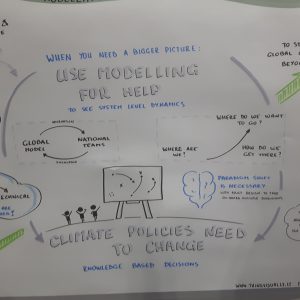 &
WHEN YOU NEED A BIGGER PICTURE:
USE MODELLING
FOR HELP
TO SEE SYSTEM LEVEL DYNAMICS
TO SE
GLOBAL
BEYO
GLOBAL
MODEL
NATIONAL
TEAMS
WHERE ARE
WE?
WHERE DO WE WANT
TO GO?
HOW DO WE
GET THERE?
PARADIGM SHIFT
IS NECESSARY
ECHNICAL
ARE
CLIMATE POLICIES NEED
TO CHANGE
KNOWLEDGE BASED DECISIONS